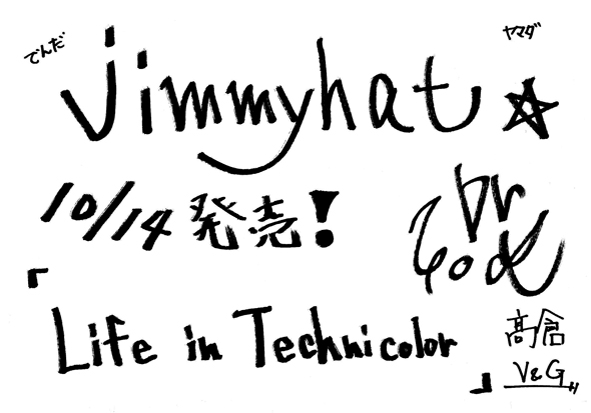 でんだ
ヤマダ
jimmyhat☆
10/14発売!
『Life in Technicolor』
髙倉
V&G